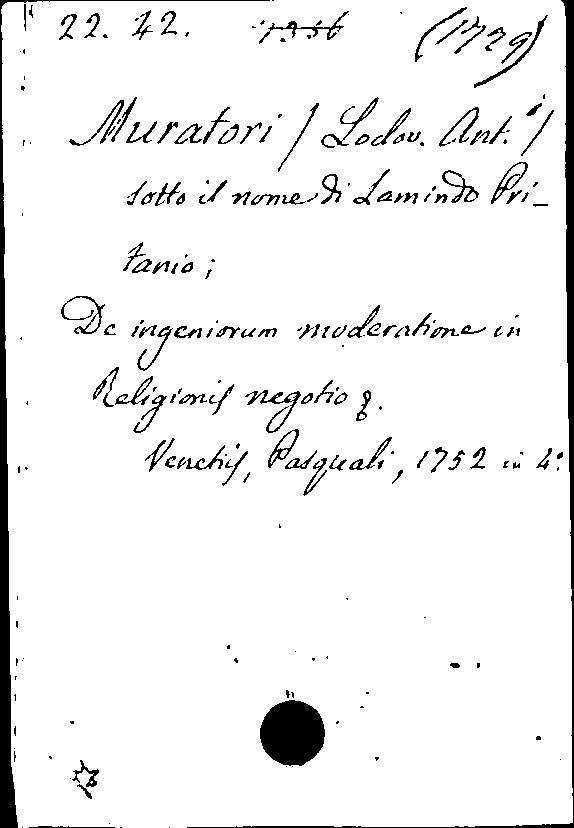 22. 42. 1356 (1729)
Muratori / Lodov. Ant.º /
sotto il nome di Lamindo Pri-
tanio;
De ingeniorum moderatione in
Religionis negotio &.
Venetiis, Pasquali, 1752 in 4º